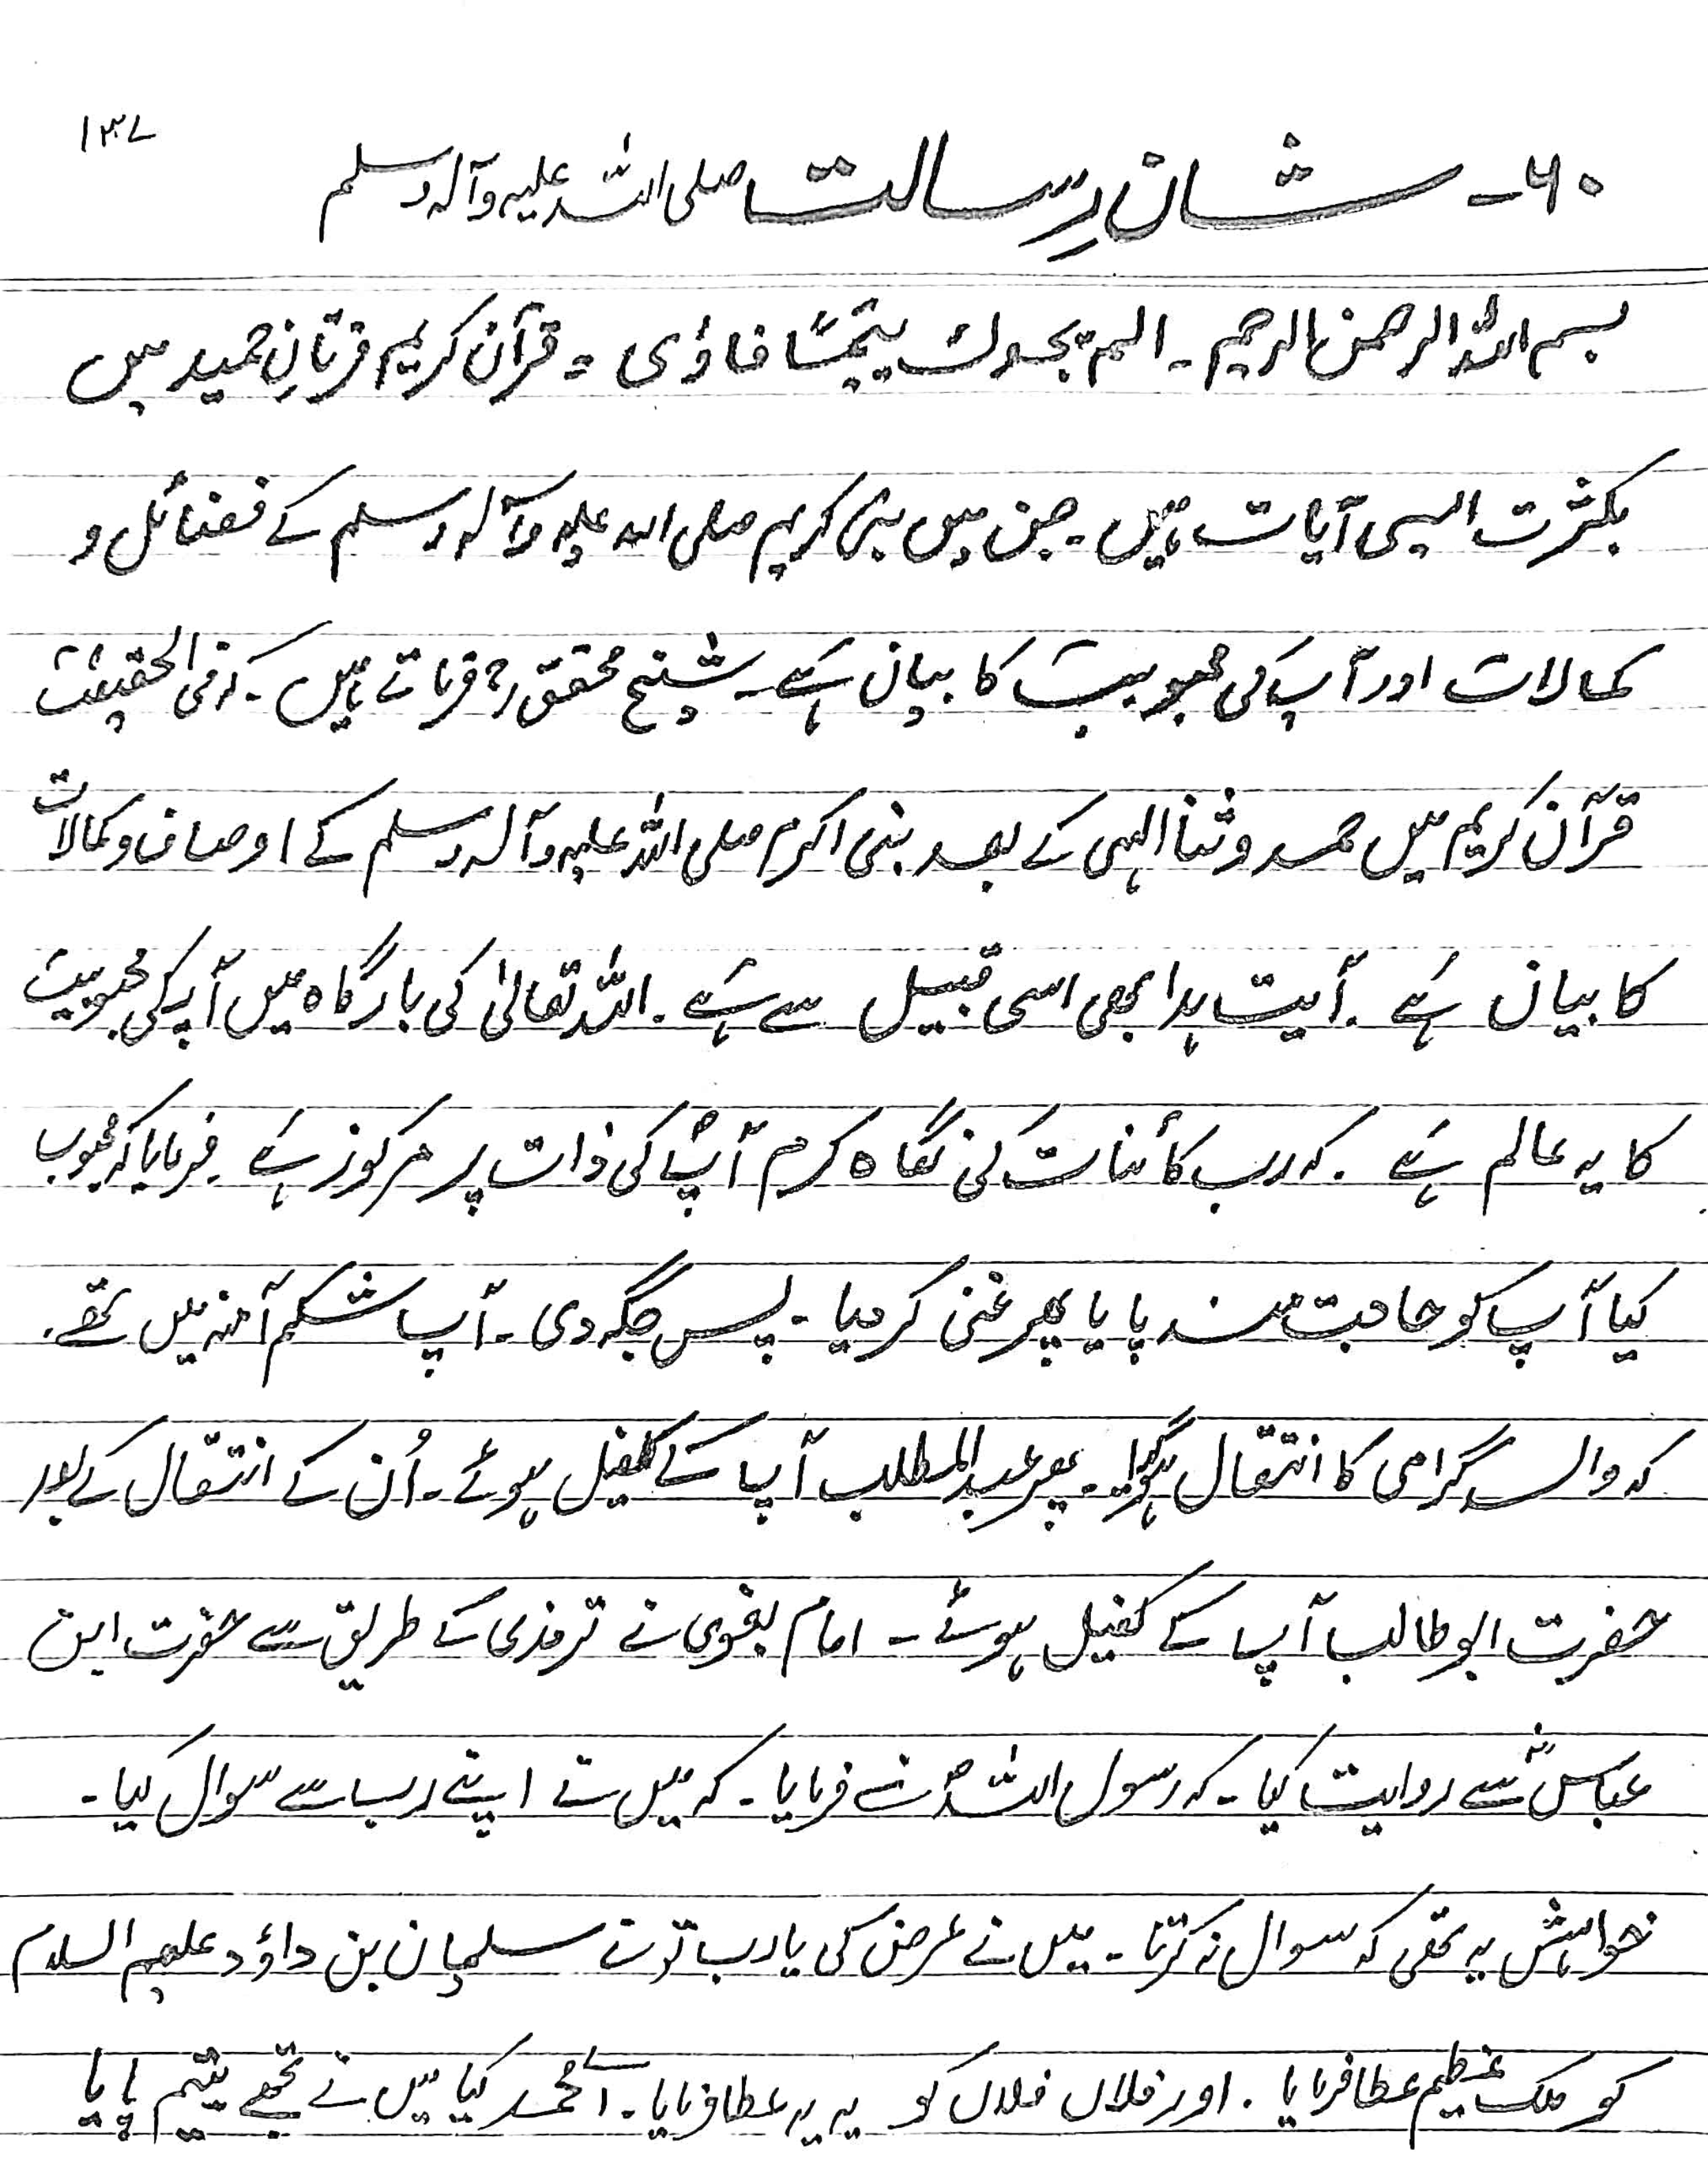 ۱۳۷
۶۰۔ شانِ رسالت صلی اللہ علیہ وآلہ وسلم
بسم اللہ الرحمن الرحیم۔ الم یجدک یتیمًا فاوٰی۔ قرآن کریم فرقانِ حمید میں
بکثرت ایسی آیات ہیں۔ جن میں نبی کریم صلی اللہ علیہ وآلہ وسلم کے فضائل و
کمالات اور آپ کی محبوبیت کا بیان ہے۔ شیخ محقق رح فرماتے ہیں۔ کہ فی الحقیقت
قرآن کریم میں حمد و ثنا الہی کے بعد نبی اکرم صلی اللہ علیہ وآلہ وسلم کے اوصاف و کمالات
کا بیان ہے۔ آیت ہذا بھی اسی قبیل سے ہے۔ اللہ تعالیٰ کی بارگاہ میں آپ کی محبوبیت
کا یہ عالم ہے۔ کہ رب کائنات کی نگاہ کرم آپ کی ذات پر مرکوز ہے۔ فرمایا کہ محبوب
کیا آپ کو حاجت مند پایا پھر غنی کر دیا۔ پس جگہ دی۔ آپ شکم آمنہ میں تھے۔
کہ والد گرامی کا انتقال ہوگیا۔ پھر عبدالمطلب آپ کے کفیل ہوئے۔ اُن کے انتقال کے بعد
حضرت ابو طالب آپ کے کفیل ہوئے۔ امام بغوی نے ترمذی کے طریق سے حضرت ابن
عباسؓ سے روایت کیا۔ کہ رسول اللہؐ نے فرمایا۔ کہ میں نے اپنے رب سے سوال کیا۔
خواہش یہ تھی کہ سوال نہ کرتا۔ میں نے عرض کی یا رب تو نے سلیمان بن داؤد علیھم السلام
کو ملک عظیم عطا فرمایا۔ اور فلاں فلاں کو یہ یہ عطا فرمایا۔ اے محمد کیا میں نے تجھے یتیم پایا